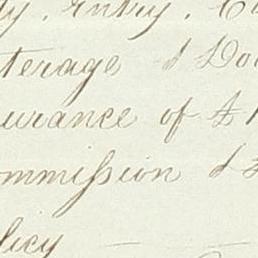 ty. Entry. C
terage & Do
urance of £
ommission & 
licy